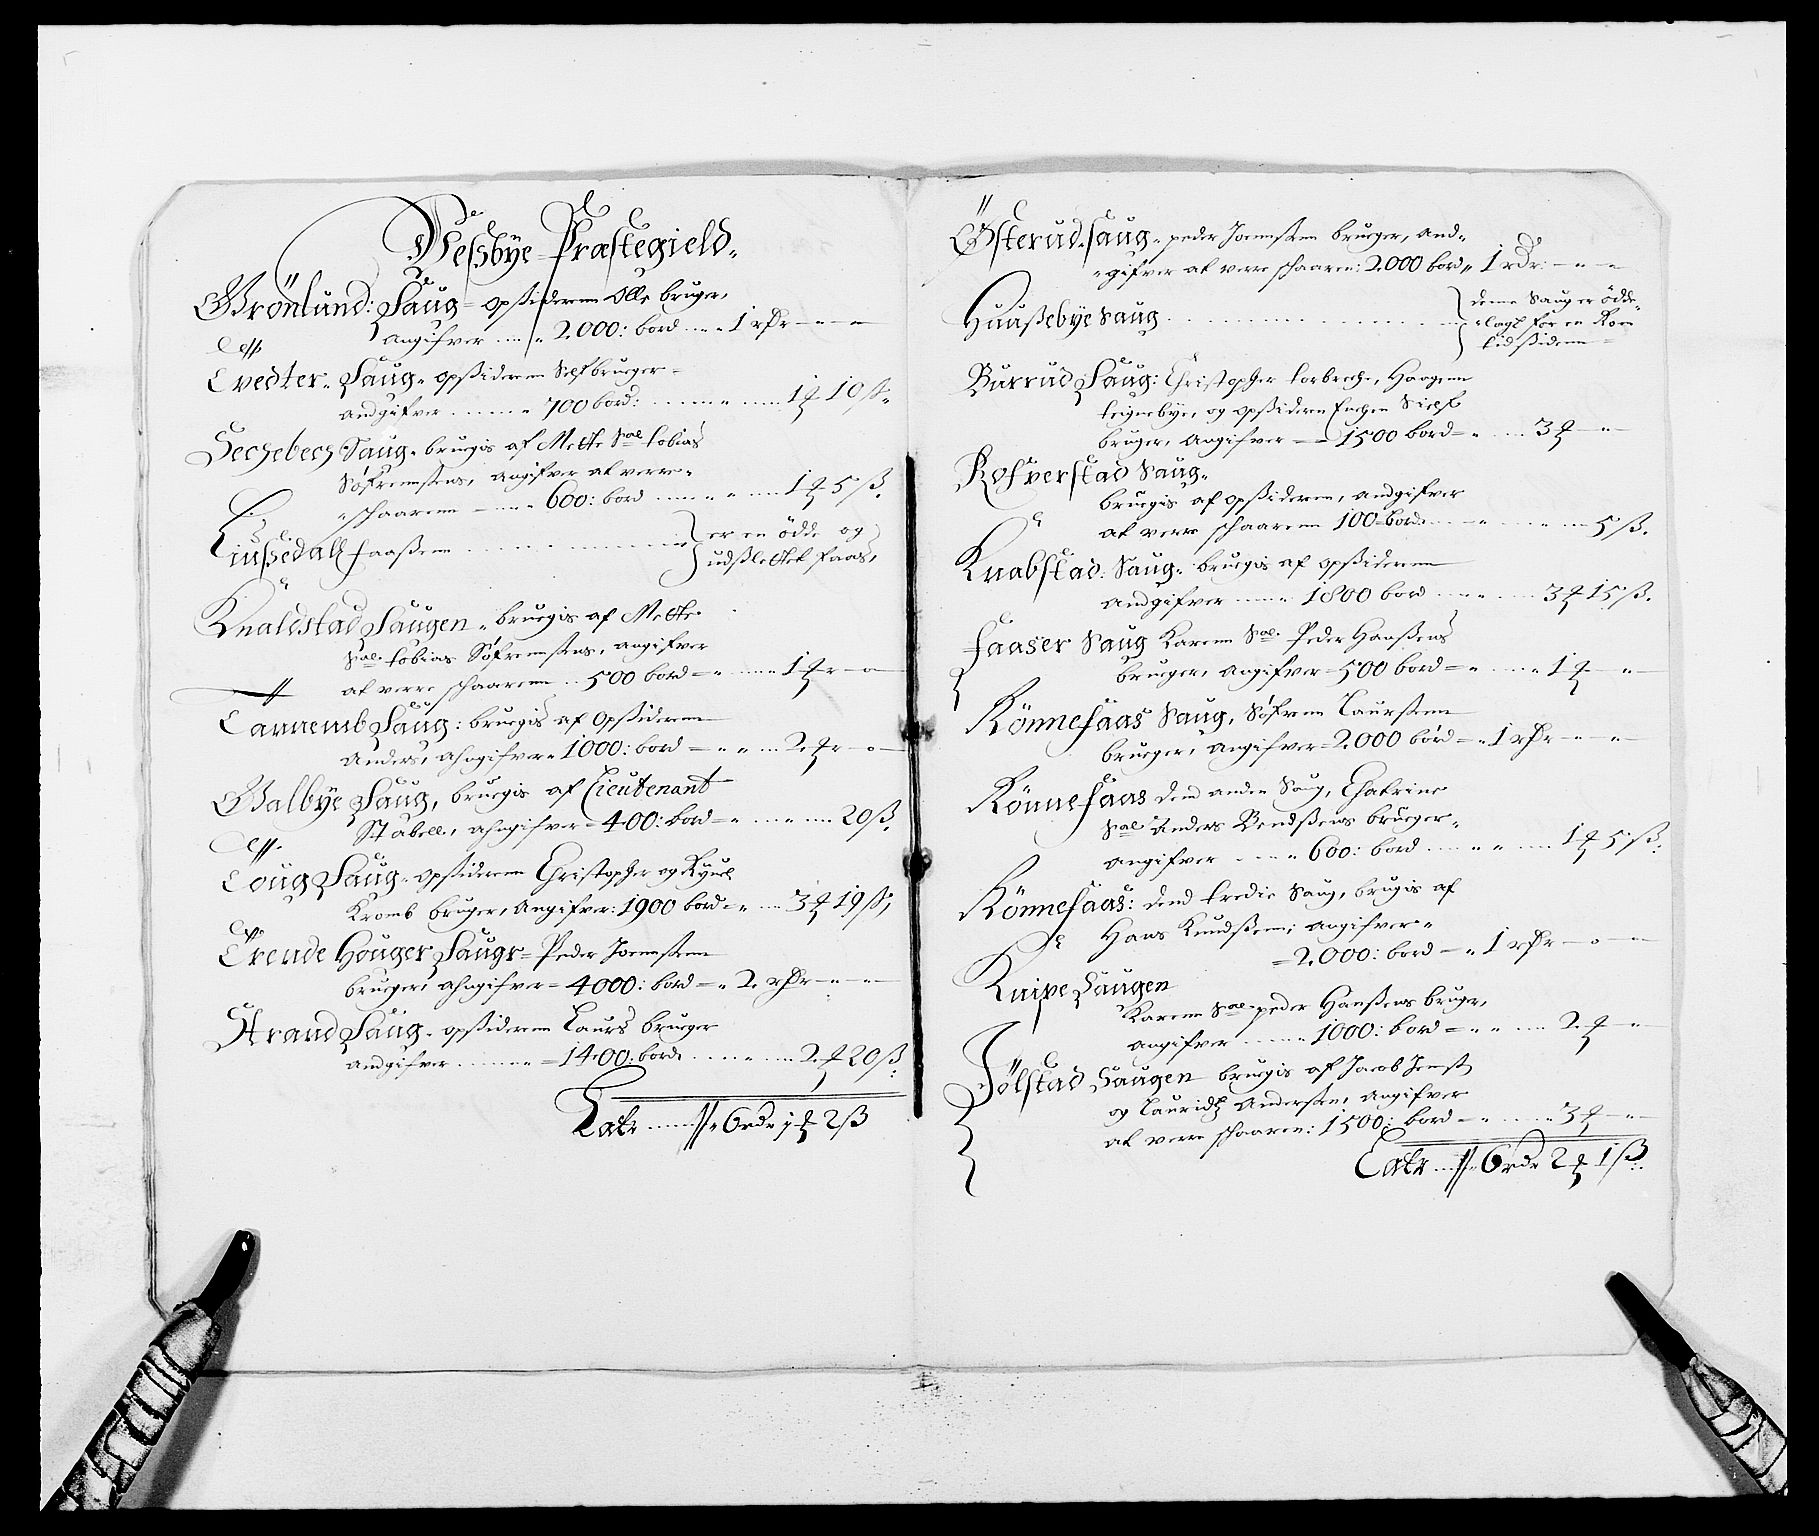 Nessbÿe Præstegield
Grönlund: Saug opsidderen Olle bruger,
angifver 2000: bord 1 rdr
Tvedter Saug opsidderen Self bruger
andgifver 700 bord: 1 10 ß
Bechebech Saug brugis af Mette Sal tobias
Söfrensens, angifver at verre
schaaren 600: bord 1 5 ß.
Liussedall faassen er en ödde og
udsslettet faas,
Knaldstad Saugen brugis af Mette
Sal. tobias Söfrensens, angifver
at verre schaaren 500 bord 1
Tarnemb Saug: brugis af opsidderen
Anders, ahngifver 1000: bord 2
Galbÿe Saug, brugis af Lieutenant
Stabell, ahngifver 400: bord 20 ß.
Toug Saug opsidderen Christopher og
Kromb bruger, Angifver: 1900 bord 3 19 ß,
Trende Houger Saugr Peder Joensen
bruger, ahngifver 4000: bord 2 rdr
Strand Saug opsidderen Laurs bruger
andgifver 1400: bord 2 20 ß
Late 6 rdr 1 2 ß
Österud Saug peder Joensen bruger, and
gifver at verre schaaren: 2000 bord 1 rdr
Huussebÿe Saug denne Saug er ödde
lagt for en Kort
tid sidenn
Burrud Saug: Christopher torbech, Haagenn
teignebÿe, og opsidderen Enchen Sielf
bruger, Angifver 1500 bord 3
Rofverstad Saug
brugis af opsidderen, andgifver
at verre schaaren 100 bord 5 ß.
Knabstad: Saug brugis af opsidderen
andgifver 1800 bord 3 15 ß.
Faaser Saug Karenn Sal. Peder Hanssens
bruger, angifver 500 bord 1
Rönnefaas Saug, Söfren Laursenn
bruger, angifver 2000 bord 1 rdr
Rönnefaas dend anden Saug, Chatrine
Sal Anders Bendssens bruger
angifver 600: bord 1 5 ß.
Rönnefaas: dend tredie Saug, brugis af
Hans Knudssen; angifver
2000: bord 1 rdr
Knipe Saugen
Karenn Sal peder Hanssens bruger,
angifver 1000: bord 2
Jölstad Saugen brugis af Jacob Jenss
og Lauridtz Andersen, angifver
at verre schaaren: 1500: bord 3
Late 6 rdr 2 1 ß.